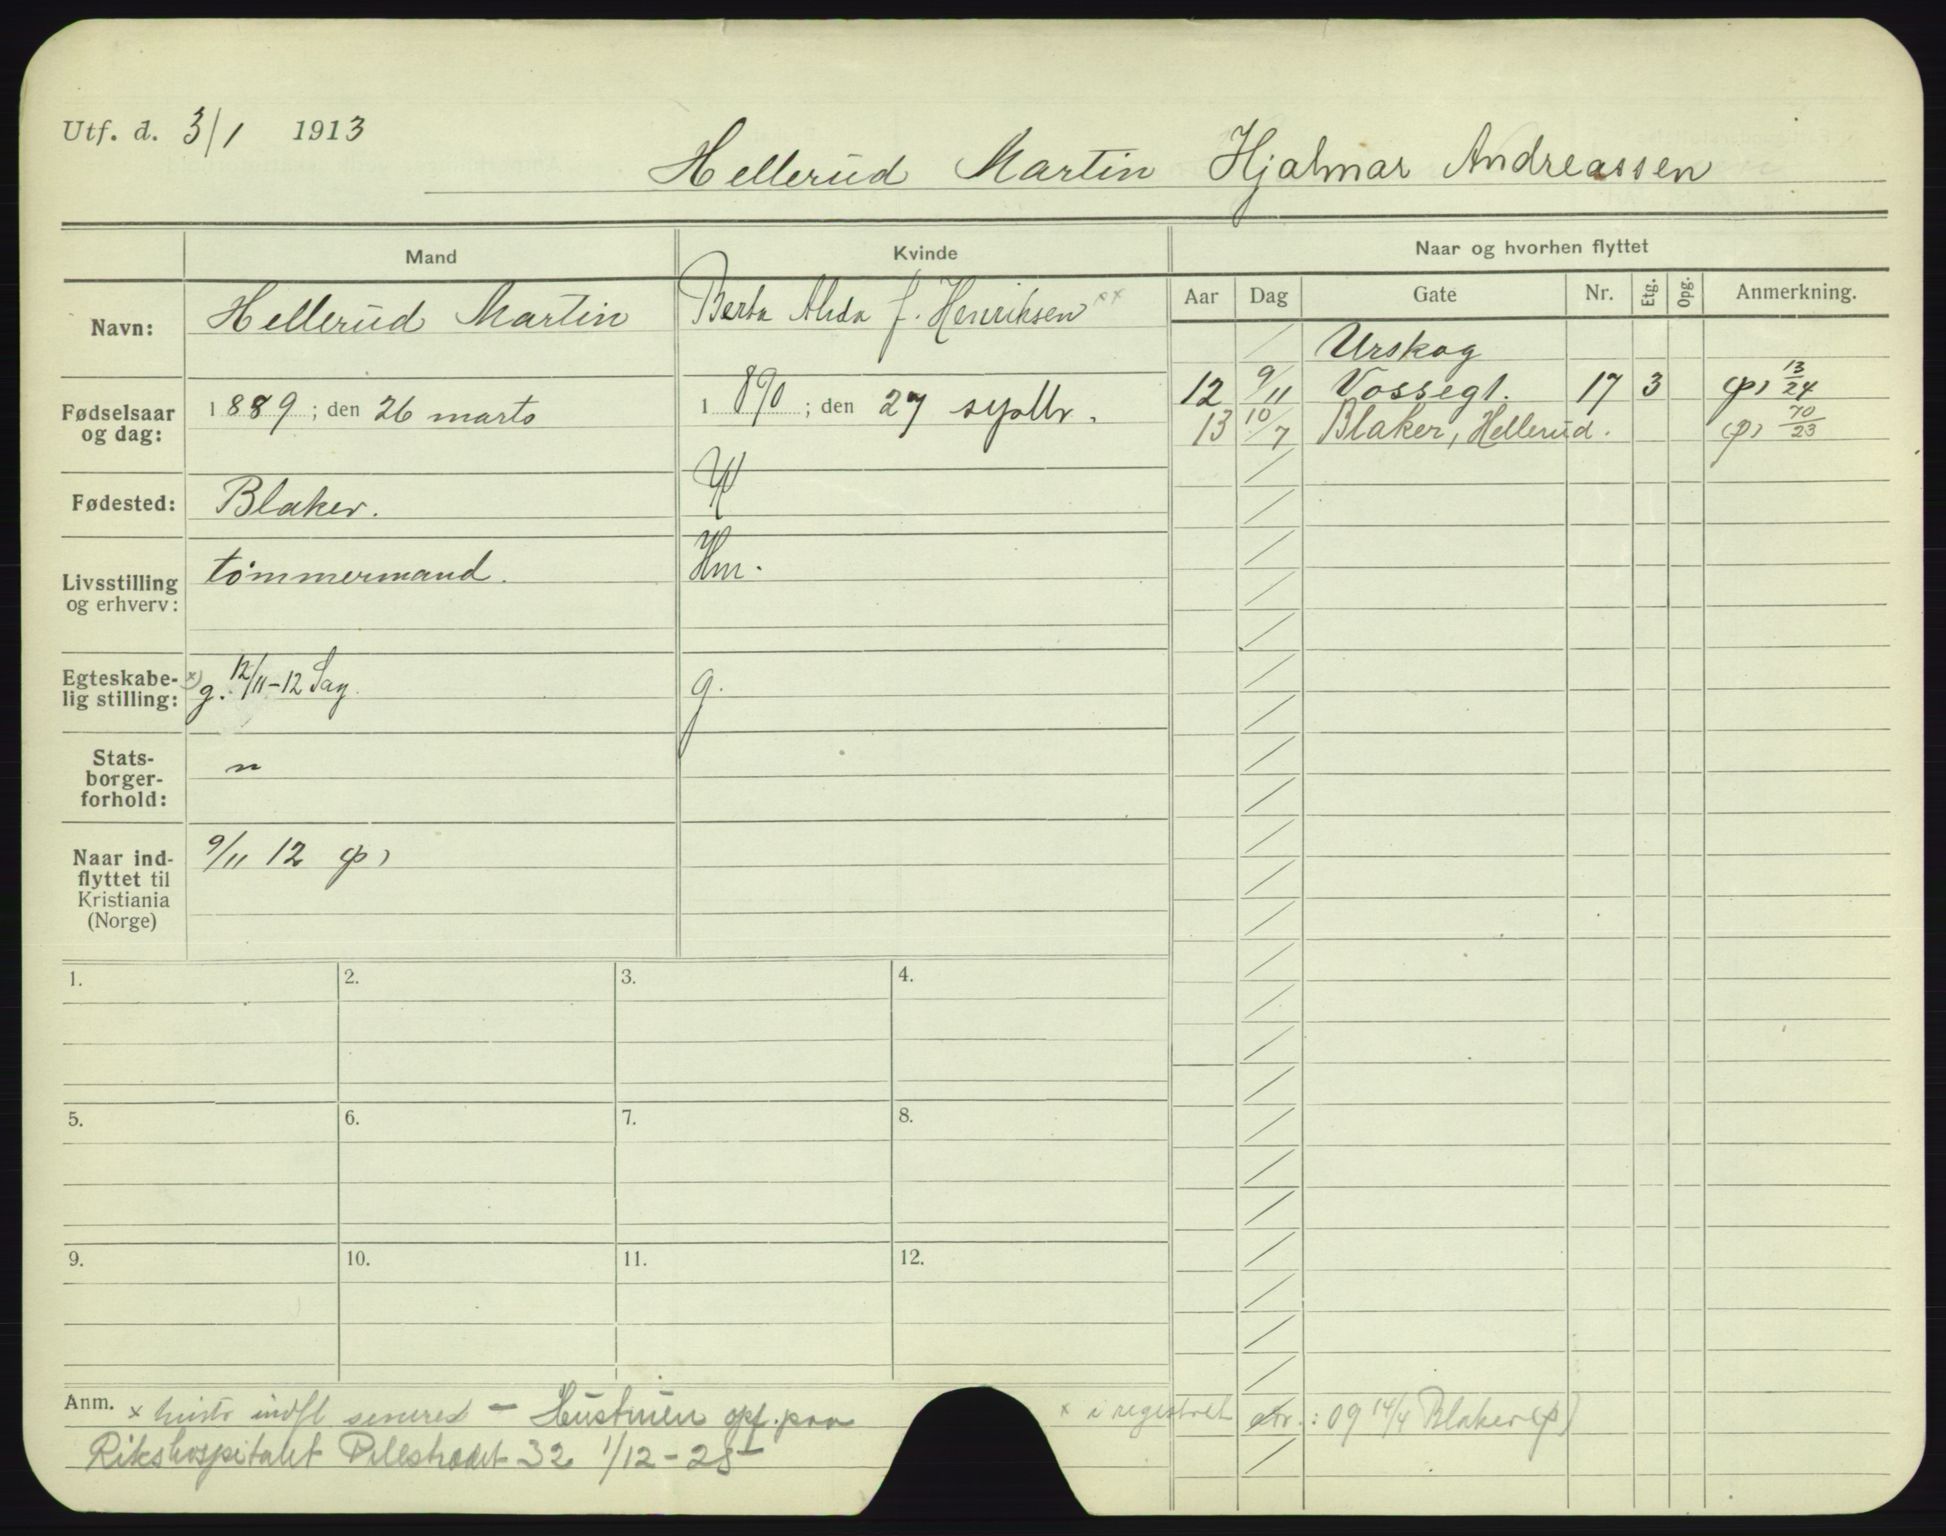 Utf. d. 3/1 1913
Hellerud Martin Hjalmar Andreassen
Mand
Kvinde
Naar og hvorhen flyttet
Aar Dag Gate Nr. Etg. Opg. Anmerkning.
Navn: Hellerud Martin
Berta Alida f. Henriksen xx
Fødselsaar og dag: 1889; den 26 marts
1890; den 27 septbr.
Fødested: Blaker.
Livsstilling og erhverv: tömmermand.
Hm.
Egteskabe-
lig stilling: x) g. 12/11-12 Sag.
g.
Stats-
borger-
forhold: n
Naar ind-
flyttet til
Kristiania
(Norge) 9/11 12 (p)
Urskog
12 9/11 Vossegt. 17 3 (p) 13/24
13 10/7 Blaker, Hellerud. (p) 70/23
1. 2. 3. 4.
5. 6. 7. 8.
9. 10. 11. 12.
Anm. x hustr indfl senere - Hustruen opf. paa
Rikshospitalet Pilestrædet 32 1/12-25
x i registret : 09 14/4 Blaker (p)